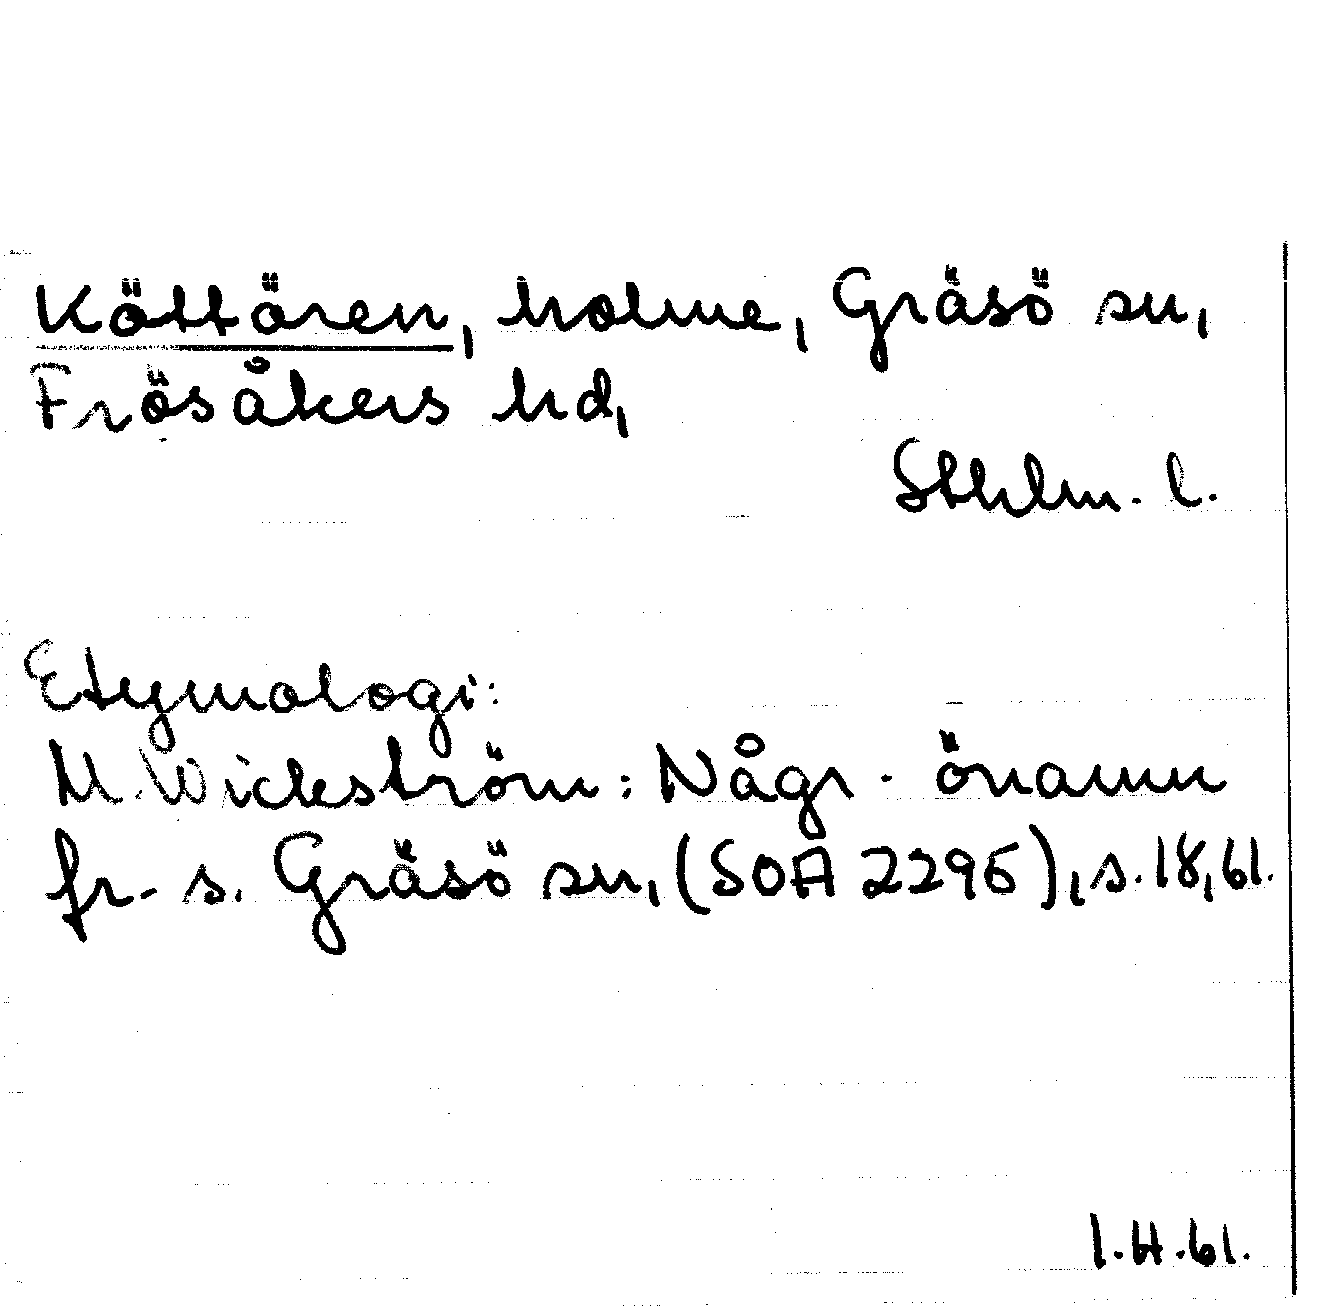 Köttören, holme, Gräsö sn,
Frösåkers hd,
Sthlm. l.
Etymologi:
M. Wickström: Någr. önamn
fr. s. Gräsö sn, (SOA 2296), s. 18, 61.
I.H.61.